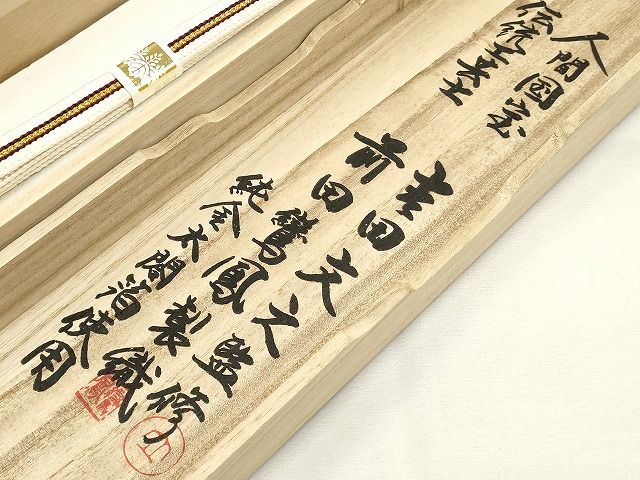 人間国宝
伝統工芸士
吉田文之監修
前田鸞鳳製織
純金太閤箔使用